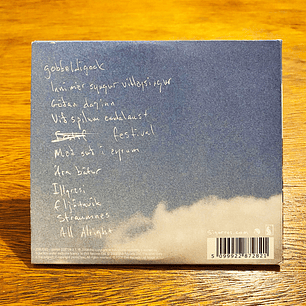 gobbeldigook
Inní mér syngur vitleysingur
Góðan daginn
Við spilum endalaust
festival
Með suð í eyrum
Ára bátur
Illgresi
Fljótavík
Straumnes
All Alright
5 099922 872821